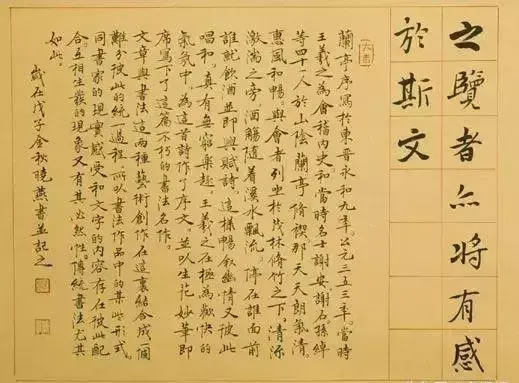 之覽者亦將有感
於斯文
蘭亭序寫於東晉永和九年。公元三五三年。當時
王羲之為會稽內史。和當時名士謝安謝石孫綽
等四十一人於山陰蘭亭脩禊那天天朗氣清。
惠風和暢。與會者列坐於茂林脩竹之下。清流
激湍之旁酒觴隨着溪水飄流。停在誰面前
誰就飲酒並即興賦詩。這樣暢敘幽情又彼此
唱和。真有無窮樂趣。王羲之在極為歡快的
氣氛中。為這首詩作了序文。並以生花妙筆即
席寫下了這篇不朽的書法名作。
文章與書法這兩種藝術創作在這裏結合成一個
難分彼此的統一過程所以書法作品中的某些形式。
同書家的現實感受和文字的內容存在彼此配
合。互相生發的現象又有其必然性。傳統書法尤其
如此。
歲在戊子金秋曉燕書並記之